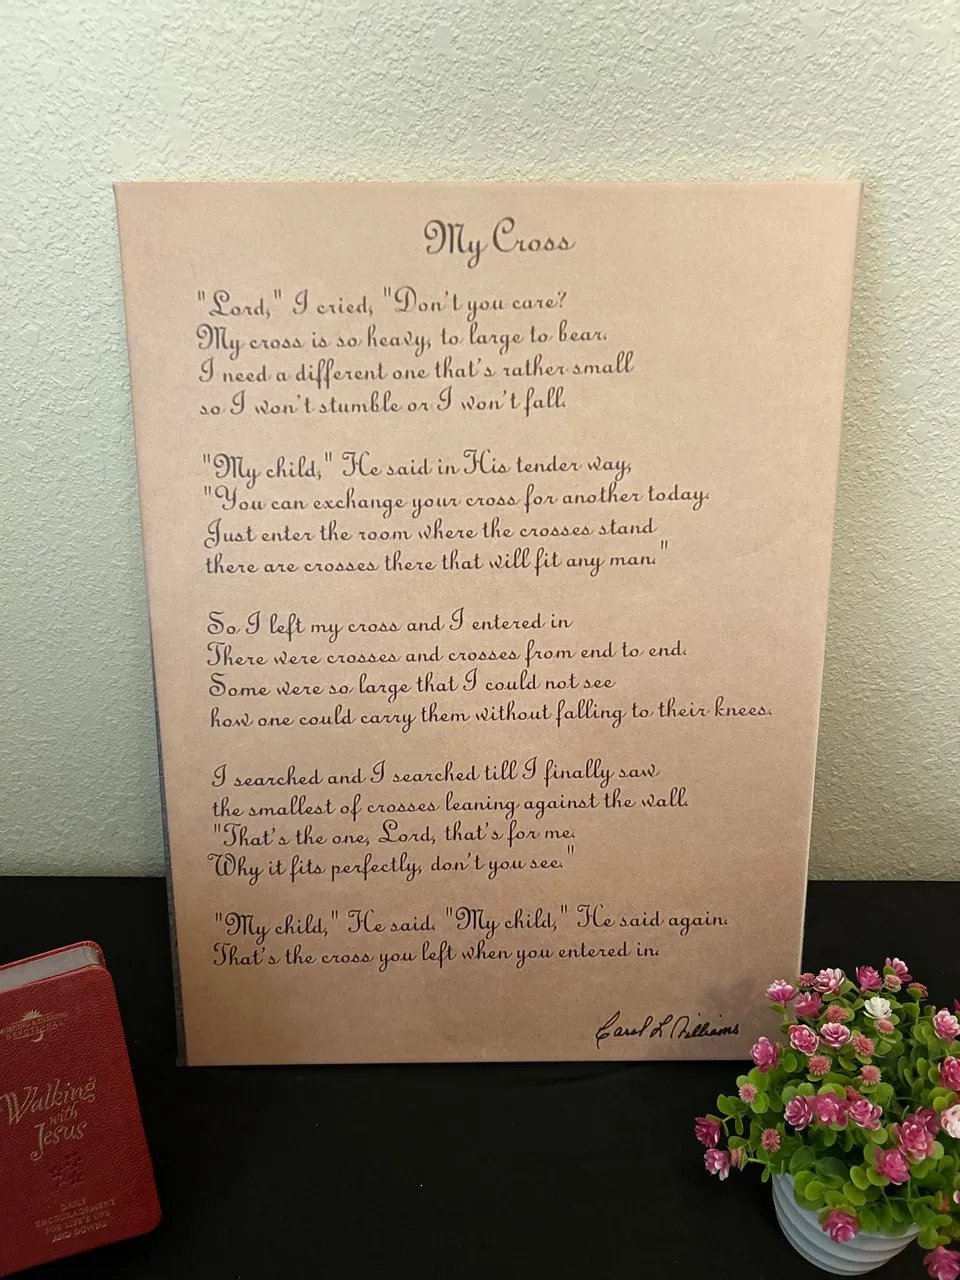 My Cross
"Lord," I cried, "Don't you care?
My cross is so heavy, to large to bear.
I need a different one that's rather small
so I won't stumble or I won't fall.
"My child," He said in His tender way,
"You can exchange your cross for another today.
Just enter the room where the crosses stand
there are crosses there that will fit any man."
So I left my cross and I entered in
There were crosses and crosses from end to end.
Some were so large that I could not see
how one could carry them without falling to their knees.
I searched and I searched till I finally saw
the smallest of crosses leaning against the wall.
"That's the one, Lord, that's for me.
Why it fits perfectly, don't you see."
"My child," He said. "My child," He said again.
That's the cross you left when you entered in.
Carol L Williams
DEVOTIONAL
Walking
with
Jesus
DAILY
ENCOURAGEMENT
FOR LIFE'S UPS
AND DOWNS